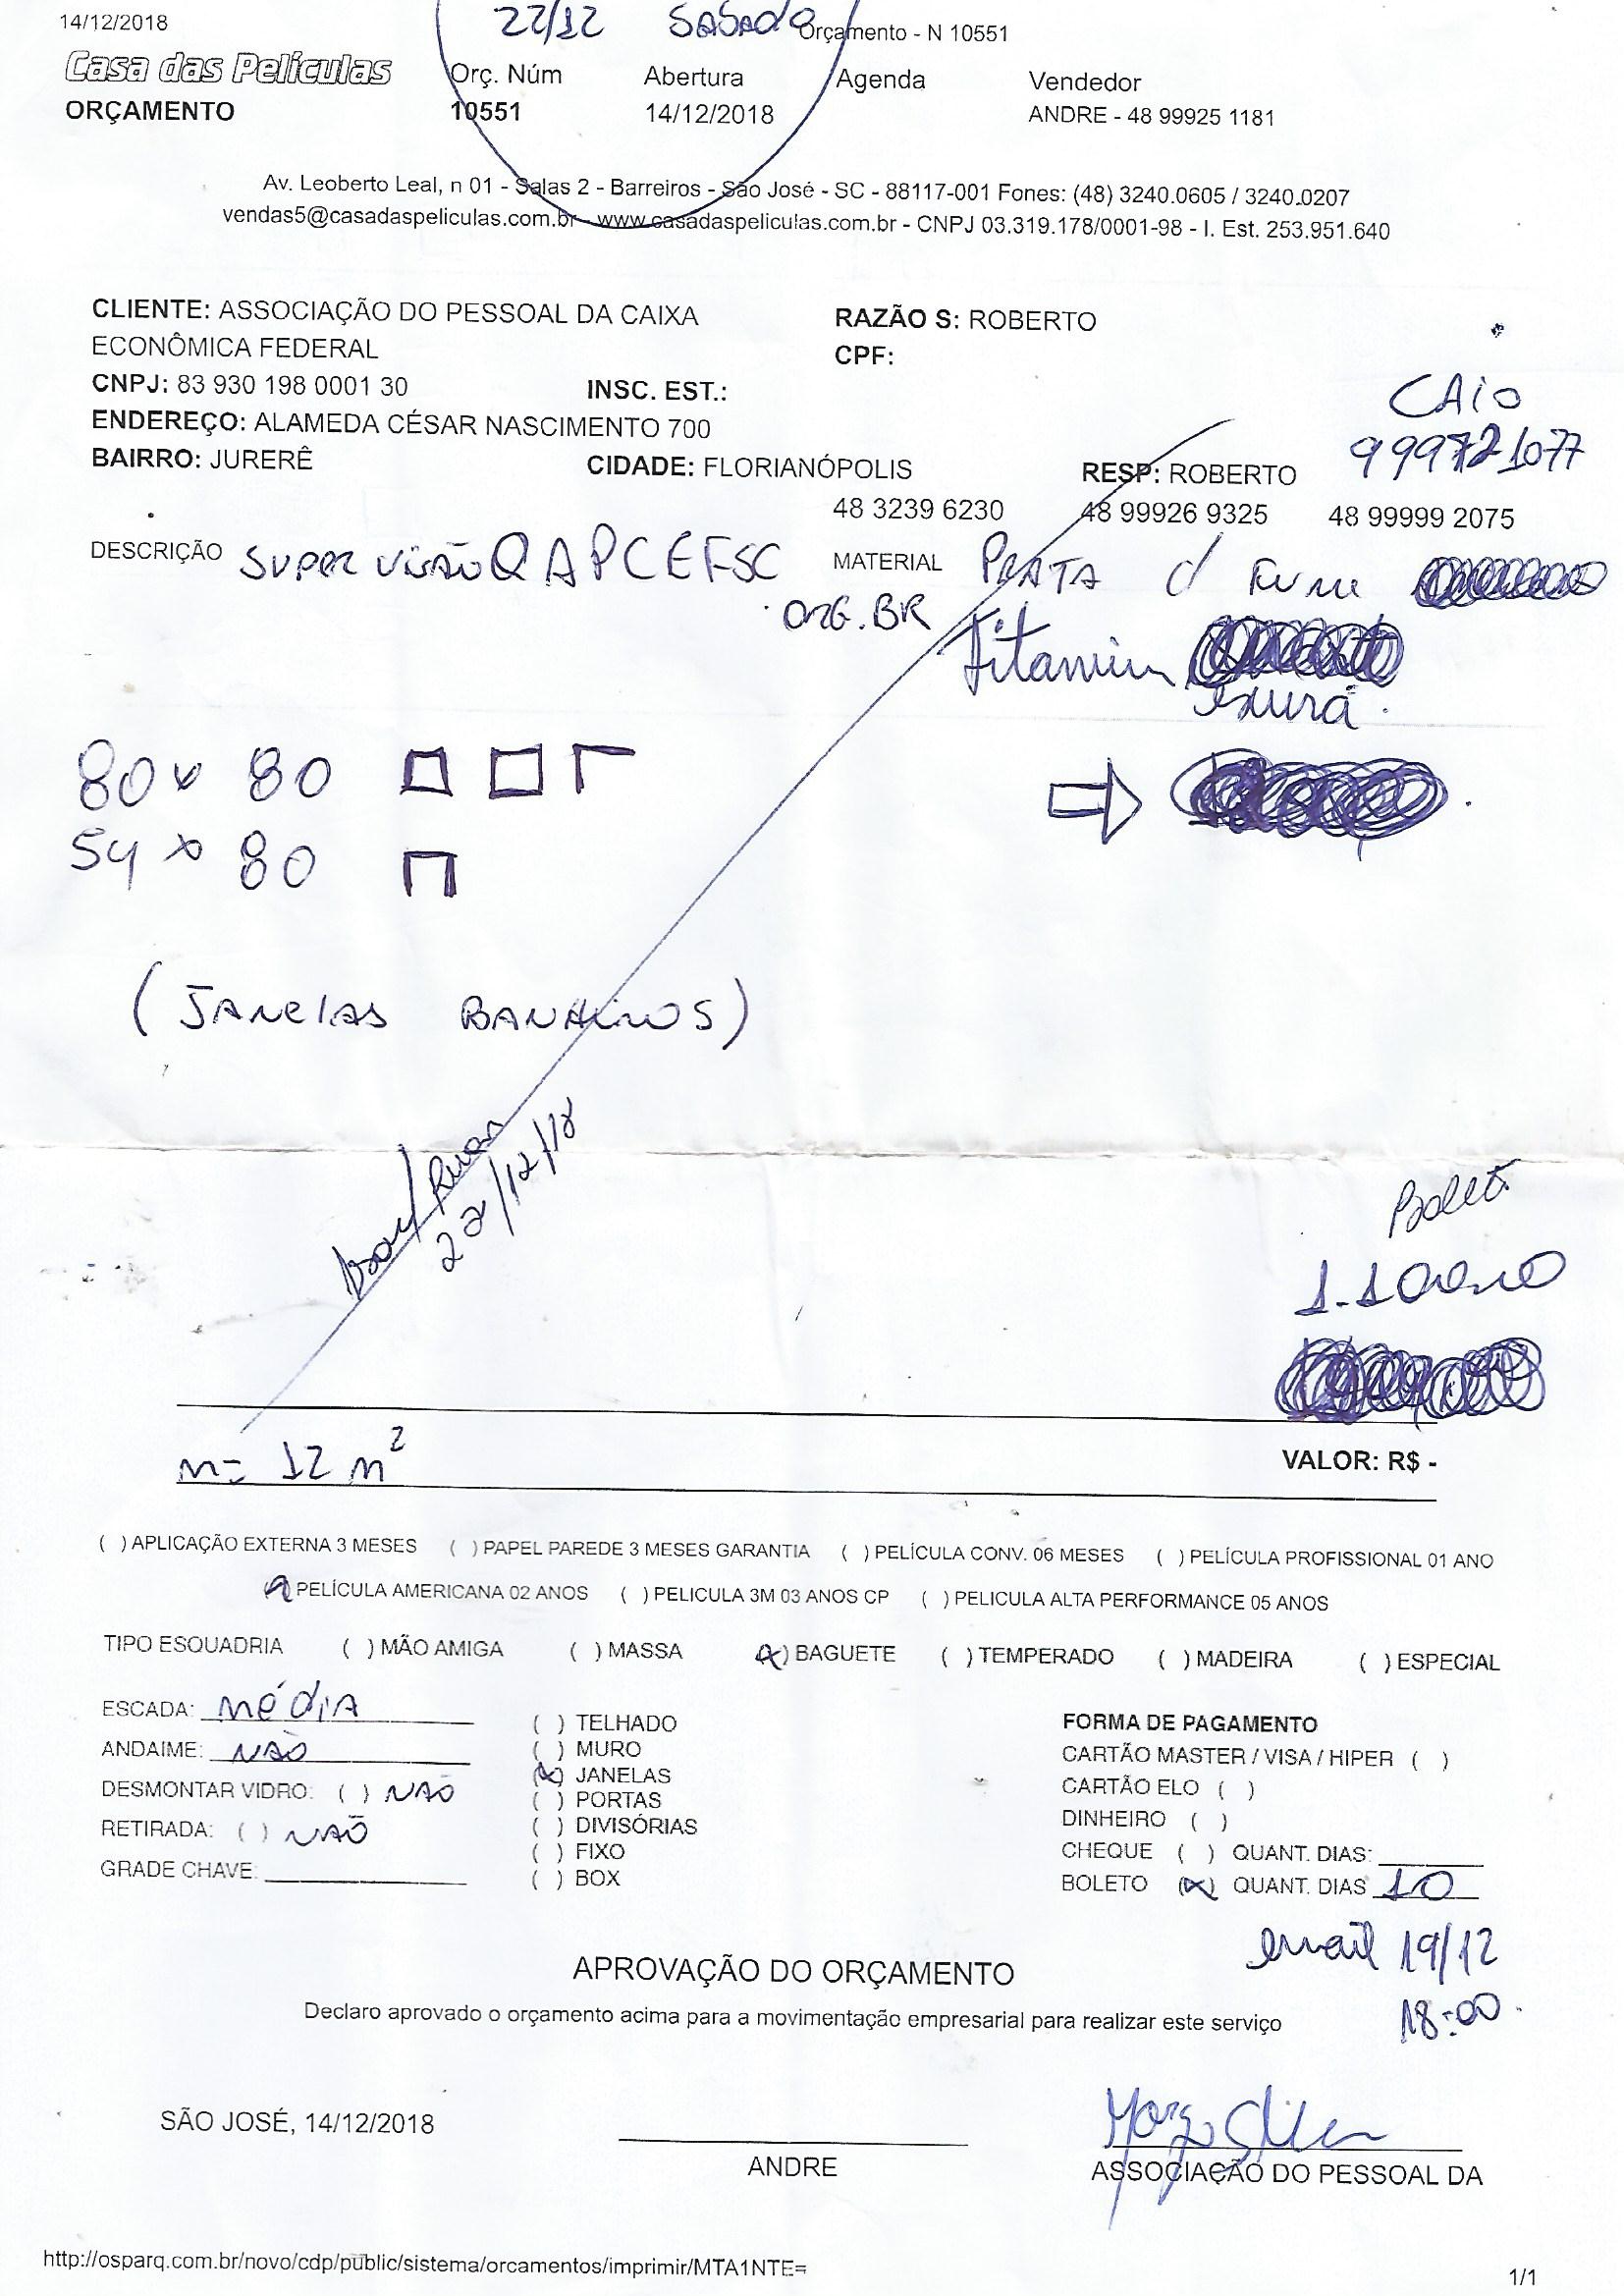 14/12/2018
22/12 SABADO
Orçamento - N 10551
Casa das Películas
Orç. Núm Abertura Agenda Vendedor
ORÇAMENTO 10551 14/12/2018 ANDRE - 48 99925 1181
Av. Leoberto Leal, n 01 - Salas 2 - Barreiros - São José - SC - 88117-001 Fones: (48) 3240.0605 / 3240.0207
vendas5@casadaspeliculas.com.br - www.casadaspeliculas.com.br - CNPJ 03.319.178/0001-98 - I. Est. 253.951.640
CLIENTE: ASSOCIAÇÃO DO PESSOAL DA CAIXA RAZÃO S: ROBERTO
ECONÔMICA FEDERAL CPF:
CNPJ: 83 930 198 0001 30 INSC. EST.:
CAIO
ENDEREÇO: ALAMEDA CÉSAR NASCIMENTO 700
999721077
BAIRRO: JURERÊ CIDADE: FLORIANÓPOLIS RESP: ROBERTO
48 3239 6230 48 99926 9325 48 99999 2075
DESCRIÇÃO SUPERVISÃO@APCEFSC MATERIAL PRATA d FUME
.ORG.BR
80 x 80
54 x 80
(JANELAS BANHEIROS)
22/12/18
Boleto
m= 12 m²
VALOR: R$ -
( ) APLICAÇÃO EXTERNA 3 MESES ( ) PAPEL PAREDE 3 MESES GARANTIA ( ) PELÍCULA CONV. 06 MESES ( ) PELÍCULA PROFISSIONAL 01 ANO
(x) PELÍCULA AMERICANA 02 ANOS ( ) PELICULA 3M 03 ANOS CP ( ) PELICULA ALTA PERFORMANCE 05 ANOS
TIPO ESQUADRIA ( ) MÃO AMIGA ( ) MASSA (x) BAGUETE ( ) TEMPERADO ( ) MADEIRA ( ) ESPECIAL
ESCADA: MÉDIA
ANDAIME: NÃO
DESMONTAR VIDRO: ( ) NÃO
RETIRADA: ( ) NÃO
GRADE CHAVE:
( ) TELHADO
( ) MURO
(x) JANELAS
( ) PORTAS
( ) DIVISÓRIAS
( ) FIXO
( ) BOX
FORMA DE PAGAMENTO
CARTÃO MASTER / VISA / HIPER ( )
CARTÃO ELO ( )
DINHEIRO ( )
CHEQUE ( ) QUANT. DIAS:
BOLETO (x) QUANT. DIAS 10
email 19/12
18:00
APROVAÇÃO DO ORÇAMENTO
Declaro aprovado o orçamento acima para a movimentação empresarial para realizar este serviço
SÃO JOSÉ, 14/12/2018
ANDRE
ASSOCIAÇÃO DO PESSOAL DA
http://osparq.com.br/novo/cdp/public/sistema/orcamentos/imprimir/MTA1NTE=
1/1